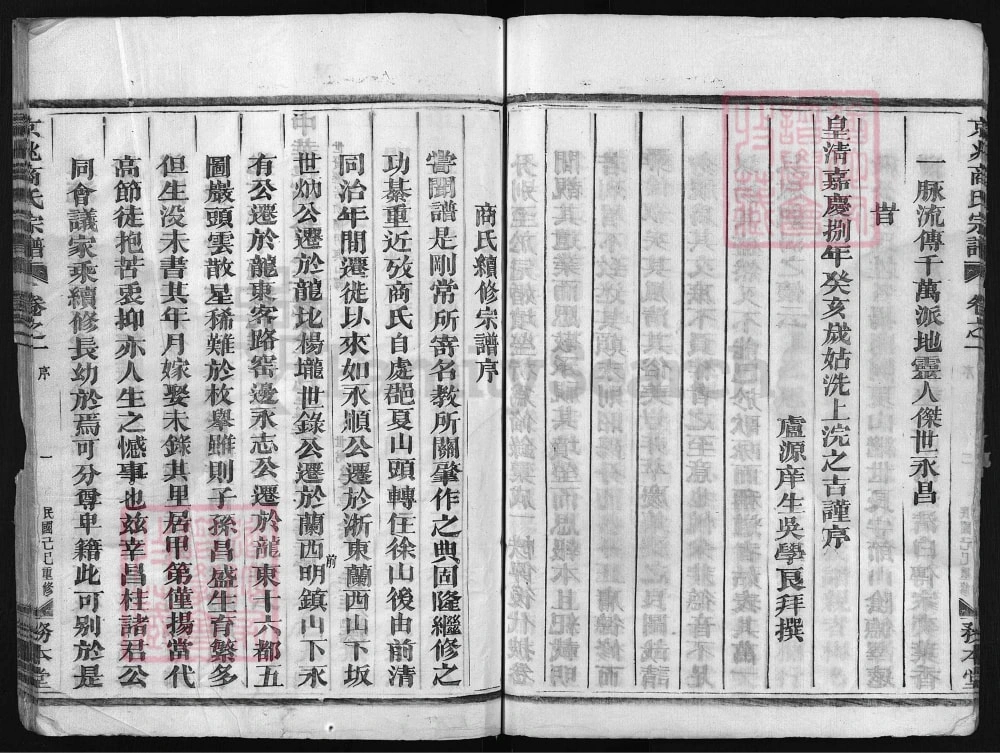 一脉流傳千萬派地靈人傑世永昌
旹
皇清嘉慶捌年癸亥歲姑洗上浣之吉謹序
盧源庠生吳學良拜撰
京兆商氏宗譜
卷之一
序
一
民國己巳重修
務本堂
商氏續修宗譜序
嘗聞譜是剛常所寄名教所關肇作之典固隆繼修之
功綦重近攷商氏自處邑夏山頭轉住徐山後由前清
同治年間遷徙以來如永順公遷於浙東蘭西山下坂
世炳公遷於龍北楊壠世錄公遷於蘭西明鎮山下永
前
有公遷於龍東客路窑邊永志公遷於龍東十六都五
圖嚴頭雲散星稀難於枚舉雖則子孫昌盛生育繁多
但生没未書其年月嫁娶未錄其里居甲第僅揚當代
高節徒抱苦衷抑亦人生之憾事也兹幸昌桂諸君公
同會議家乘續修長幼於焉可分尊卑籍此可别於是